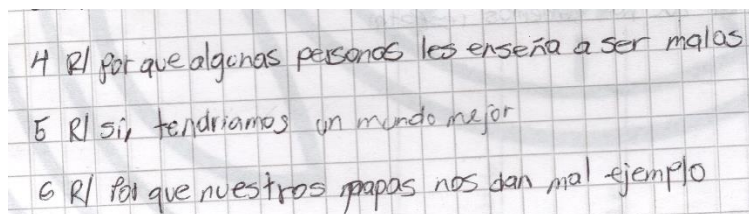 4 R/ por que algunas personas les enseña a ser malas
5 R/ si, tendriamos un mundo mejor
6 R/ Por que nuestros papas nos dan mal ejemplo